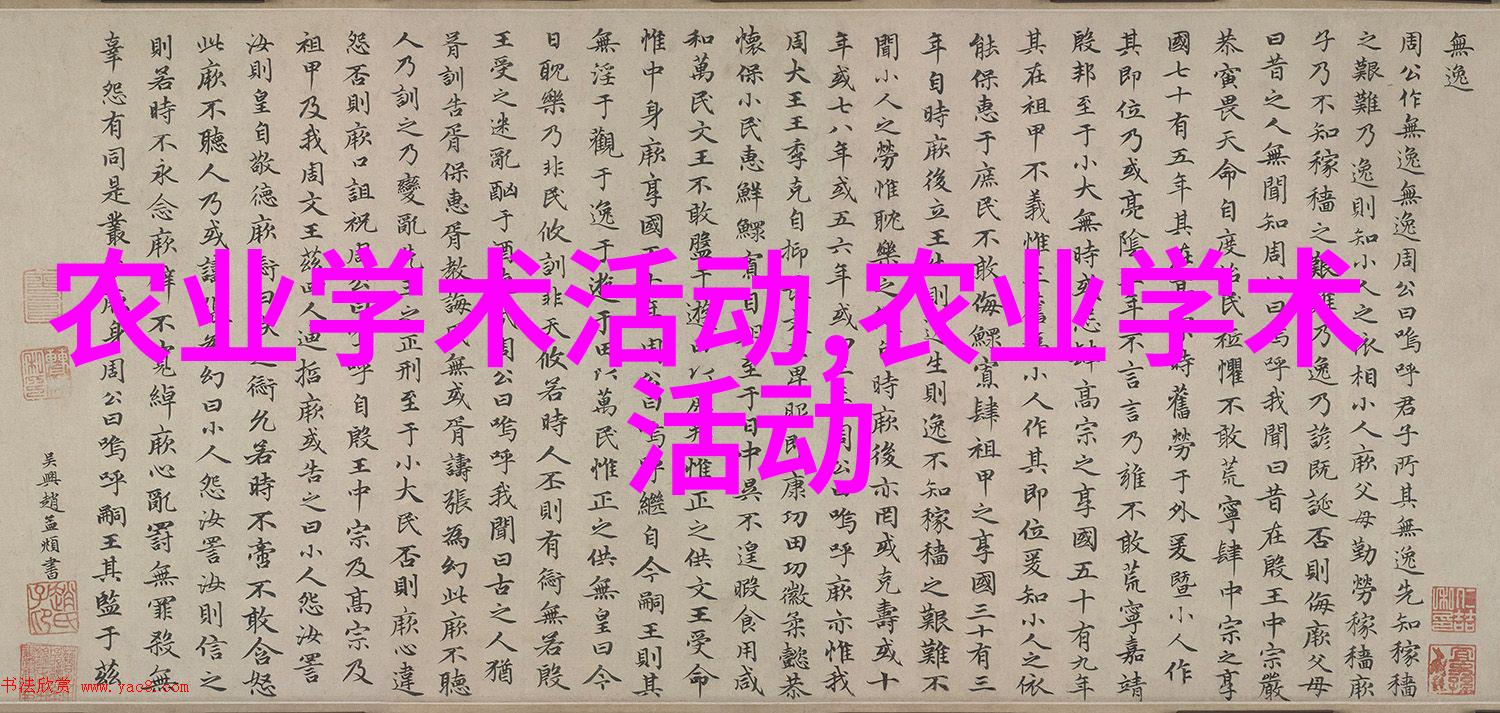 無逸
周公作無逸無逸周公曰嗚呼君子所其無逸先知稼穡
之艱難乃逸則知小人之依相小人厥父母勤勞稼穡厥
子乃不知稼穡之艱難乃逸乃諺既誕否則侮厥父母
曰昔之人無聞知周曰嗚呼我聞曰昔在殷王中宗嚴
恭寅畏天命自度治民祗懼不敢荒寧肆中宗之享
國七十有五年其在時舊勞于外爰暨小人作
其即位乃或亮陰三年不言言乃雍不敢荒寧嘉靖
殷邦至于小大無時或怨肆高宗之享國五十有九年
其在祖甲不義惟王舊小人作其即位爰知小人之依
能保惠于庶民不敢侮鰥寡肆祖甲之享國三十有三
年自時厥後立王生則生則逸不知稼穡之艱難不
聞小人之勞惟耽樂之自時厥後亦罔或克壽或十
年或七八年或五六年或三年周公曰嗚呼厥亦惟我
周大王王季克自抑卑服即康功田功徽柔懿恭
懷保小民惠鮮鰥寡自朝至于日中昃不遑暇食用咸
和萬民文王不敢盤于遊以庶邦惟正之供文王受命
惟中身厥享國五十年周公曰嗚呼繼自今嗣王則其
無淫于觀于逸于遊于田以萬民惟正之供無皇曰今
日耽樂乃非民攸訓非天攸若時人丕則有愆無若殷
王受之迷亂酗于酒周公曰嗚呼我聞曰古之人猶
胥訓告胥保惠胥教誨民無或胥譸張為幻此厥不聽
人乃訓之乃變亂先王之正刑至于小大民否則厥心違
怨否則厥口詛祝周公曰嗚呼自殷王中宗及高宗及
祖甲及我周文王茲四人迪哲厥或告之曰小人怨汝詈
汝則皇自敬德厥愆曰之愆允若時不啻不敢含怒
此厥不聽人乃或譸為幻曰小人怨汝詈汝則信之
則若時不永念厥辟不寬綽厥心亂罰無罪殺無
辜怨有同是叢厥身周公曰嗚呼嗣王其監于茲
吳興趙孟頫書
农业学术活动,农业学术
活动
书法欣赏 www.yac8.com